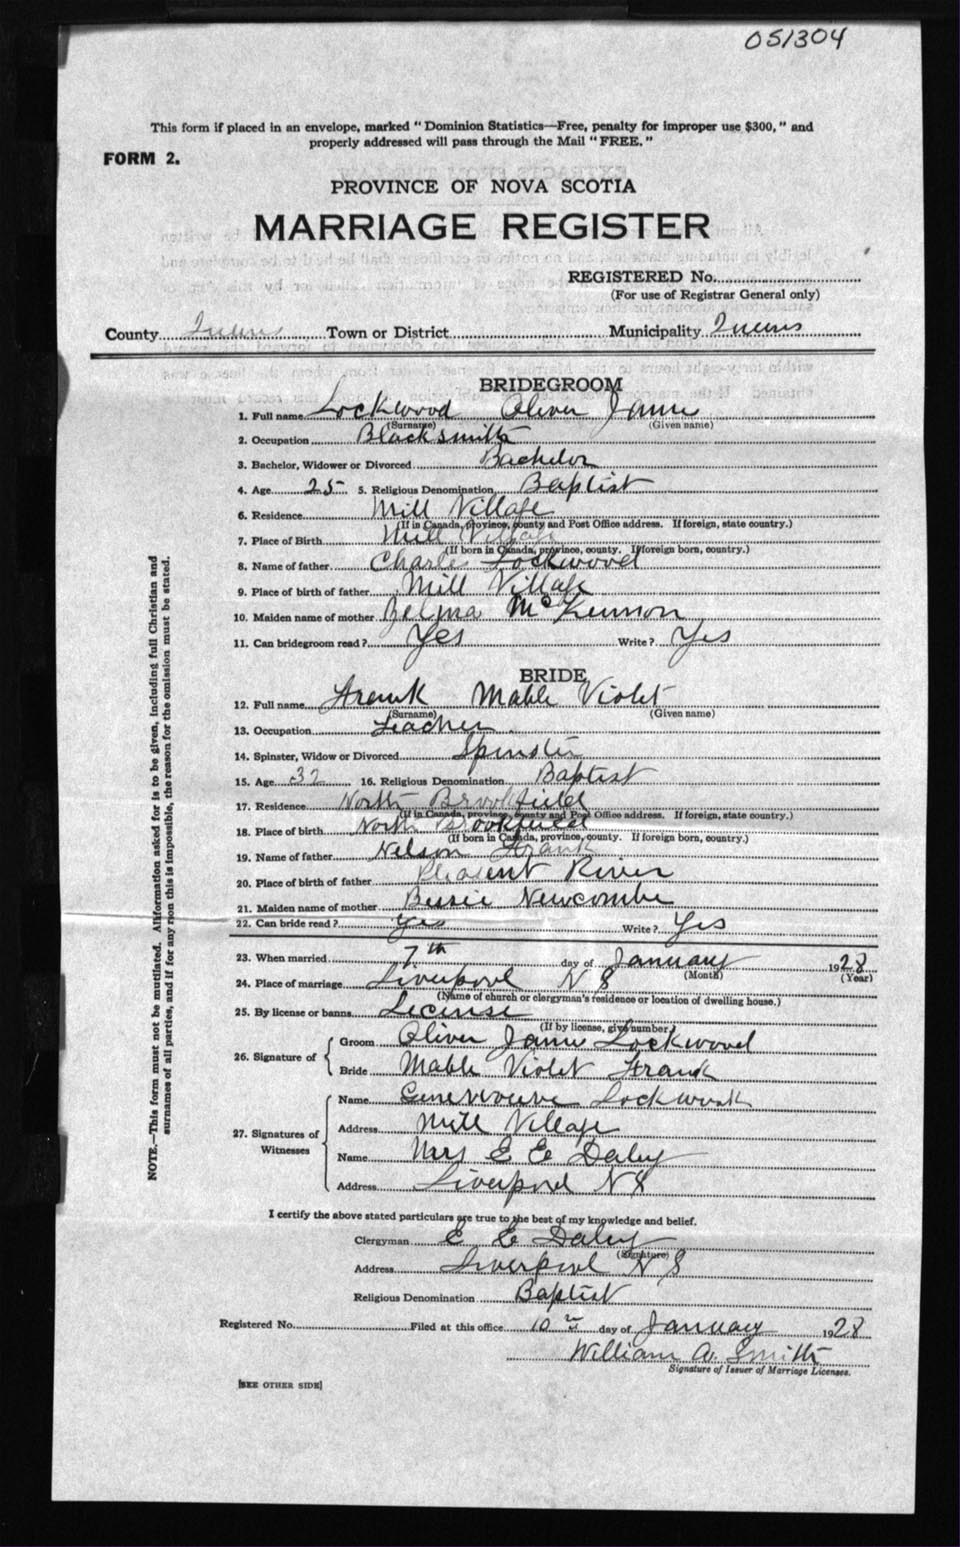 051304
This form if placed in an envelope, marked "Dominion Statistics—Free, penalty for improper use $300," and
properly addressed will pass through the Mail "FREE."
FORM 2.
PROVINCE OF NOVA SCOTIA
MARRIAGE REGISTER
REGISTERED No.
(For use of Registrar General only)
County Queens Town or District Municipality Queens
BRIDEGROOM
1. Full name Lockwood Oliver James
(Surname) (Given name)
2. Occupation Blacksmith
3. Bachelor, Widower or Divorced Bachelor
4. Age 25 5. Religious Denomination Baptist
6. Residence Mill Village
(If in Canada, province, county and Post Office address. If foreign, state country.)
7. Place of Birth Mill Village
(If born in Canada, province, county. If foreign born, country.)
8. Name of father Charles Lockwood
9. Place of birth of father Mill Village
10. Maiden name of mother Zelma McKennon
11. Can bridegroom read? Yes Write? Yes
BRIDE
12. Full name Frank Mable Violet
(Surname) (Given name)
13. Occupation Teacher
14. Spinster, Widow or Divorced Spinster
15. Age 32 16. Religious Denomination Baptist
17. Residence North Brookfield
(If in Canada, province, county and Post Office address. If foreign, state country.)
18. Place of birth North Brookfield
(If born in Canada, province, county. If foreign born, country.)
19. Name of father Nelson Frank
20. Place of birth of father Pleasent River
21. Maiden name of mother Bessie Newcombe
22. Can bride read? Yes Write? Yes
23. When married 7th day of January 1928
(Month) (Year)
24. Place of marriage Liverpool N S
(Name of church or clergyman's residence or location of dwelling house.)
25. By license or banns License
(If by license, give number.)
26. Signature of { Groom Oliver James Lockwood
Bride Mable Violet Frank
27. Signatures of Witnesses { Name Lockwood
Address Mill Village
Name Mrs E E Daley
Address Liverpool N S
I certify the above stated particulars are true to the best of my knowledge and belief.
Clergyman E E Daley
(Signature)
Address Liverpool N S
Religious Denomination Baptist
Registered No. Filed at this office 10 day of January 1928
William A. Smith
Signature of Issuer of Marriage Licenses.
[SEE OTHER SIDE]
NOTE.—This form must not be mutilated. All information asked for is to be given, including full Christian and
surnames of all parties, and if for any reason this is impossible, the reason for the omission must be stated.